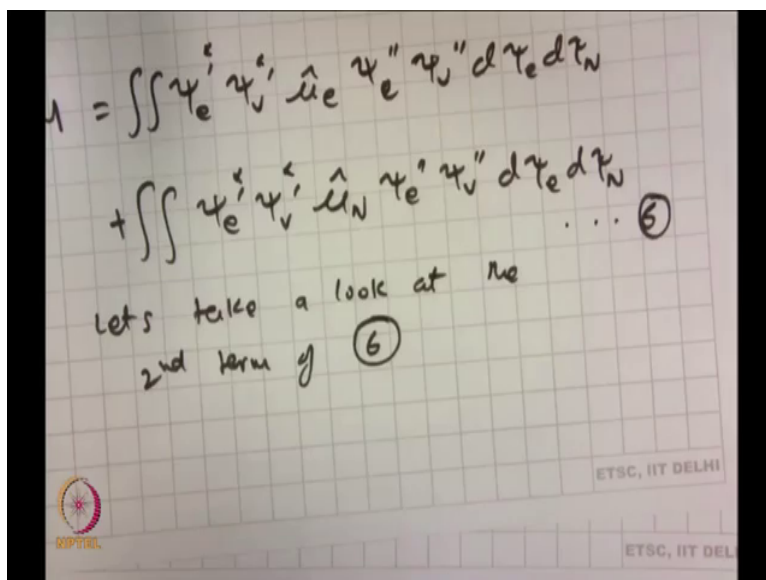 = ∬ ψe'* ψv'* μ̂e ψe'' ψv'' dτe dτN
+ ∬ ψe'* ψv'* μ̂N ψe'' ψv'' dτe dτN
.... ⑥
Lets take a look at the
2nd term of ⑥
ETSC, IIT DELHI
NPTEL
ETSC, IIT DEL